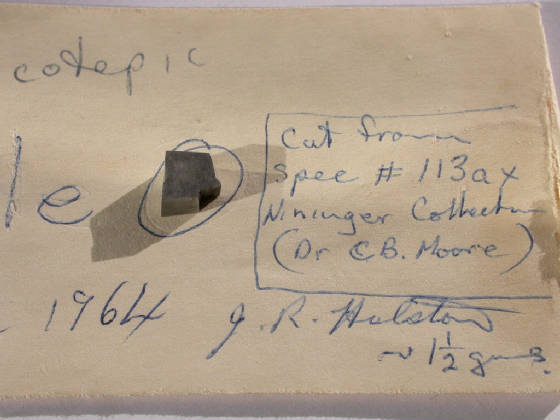 cotepic
le
Cut from
Spec # 113ax
Nininger Collection
(Dr C B. Moore)
1964
J. R. Halston
~ 1 1/2 gms.